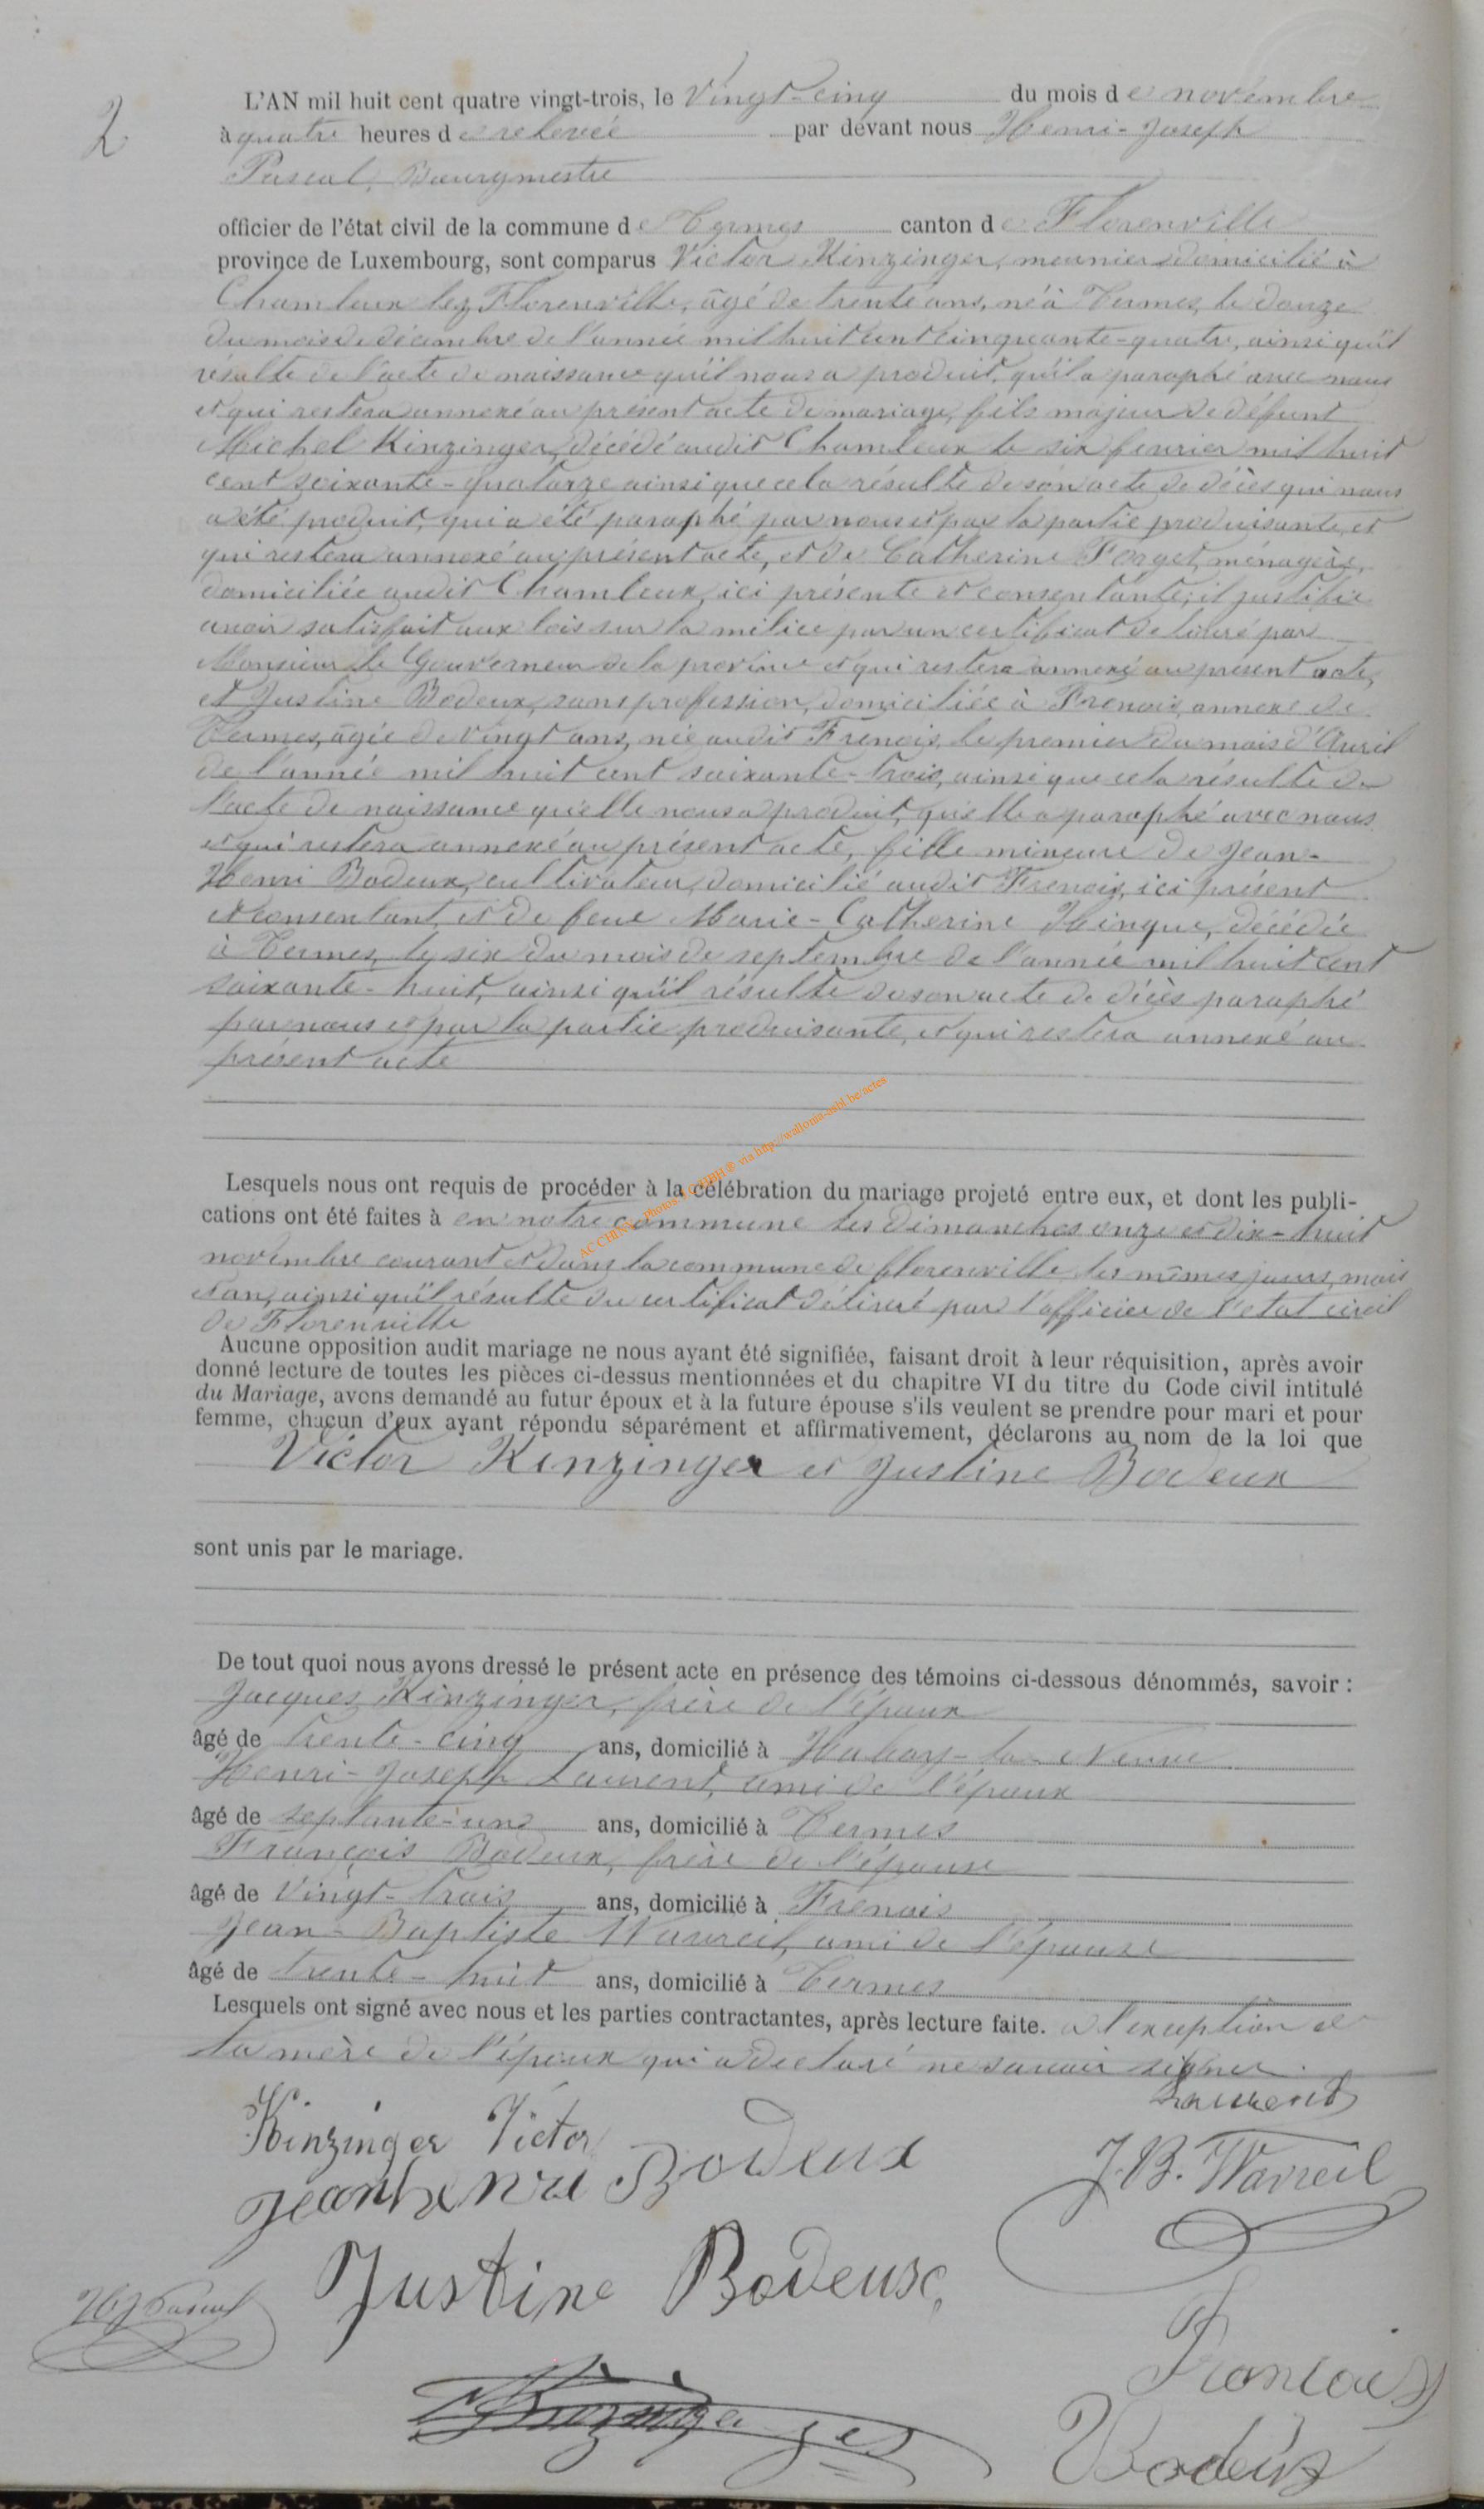 2
L'AN mil huit cent quatre vingt-trois, le Vingt-cinq du mois de novembre
à quatre heures de relevée par dévant nous Henri-Joseph
Pascal, Bourgmestre
officier de l'état civil de la commune de Termes canton de Florenville
province de Luxembourg, sont comparus Victor Kinzinger, meunier domicilié à
Chamleux lez Florenville, âgé de trente ans, né à Termes, le douze
du mois de décembre de l'année mil huit cent cinquante-quatre, ainsi qu'il
résulte de l'acte de naissance qu'il nous a produit, qu'il a paraphé avec nous
et qui restera annexé au présent acte de mariage, fils majeur de défunt
Michel Kinzinger, décédé audit Chamleux le six fevrier mil huit
cent soixante-quatorze ainsi que cela résulte de son acte de décès qui nous
a été produit, qui a été paraphé par nous et par la partie produisante, et
qui restera annexé au présent acte, et de Catherine Forget, ménagère,
domiciliée audit Chamleux, ici présente et consentante; il justifie
avoir satisfait aux lois sur la milice par un certificat délivré par
Monsieur le Gouverneur de la province et qui restera annexé au présent acte,
et Justine Bodeux, sans profession, domiciliée à Frenois, annexe de
Termes, âgée de vingt ans, née audit Frenois, le premier du mois d'Avril
de l'année mil huit cent soixante-trois, ainsi que cela résulte de
l'acte de naissance qu'elle nous a produit, qu'elle a paraphé avec nous
et qui restera annexé au présent acte, fille mineure de Jean-
Henri Bodeux, cultivateur, domicilié audit Frenois, ici présent
et consentant, et de feue Marie-Catherine Hinque, décédée
à Termes, le six du mois de septembre de l'année mil huit cent
soixante-huit, ainsi qu'il résulte de son acte de décès paraphé
par nous et par la partie produisante, et qui restera annexé au
présent acte
AC CHINY - Photos via http://wallonia-asbl.be/actes
Lesquels nous ont requis de procéder à la célébration du mariage projeté entre eux, et dont les publi-
cations ont été faites à en notre commune les dimanches onze et dix-huit
novembre courant et dans la commune de florenville les mêmes jours, mois
et an, ainsi qu'il résulte du certificat délivré par l'officier de l'etat civil
de Florenville
Aucune opposition audit mariage ne nous ayant été signifiée, faisant droit à leur réquisition, après avoir
donné lecture de toutes les pièces ci-dessus mentionnées et du chapitre VI du titre du Code civil intitulé
du Mariage, avons demandé au futur époux et à la future épouse s'ils veulent se prendre pour mari et pour
femme, chacun d'eux ayant répondu séparément et affirmativement, déclarons au nom de la loi que
Victor Kinzinger et Justine Bodeux
sont unis par le mariage.
De tout quoi nous avons dressé le présent acte en présence des témoins ci-dessous dénommés, savoir :
Jacques Kinzinger, frère de l'époux
âgé de trente-cinq ans, domicilié à Habay-la-Neuve
Henri-Joseph Laurent, ami de l'époux
âgé de septante-un ans, domicilié à Termes
François Bodeux, frère de l'épouse
âgé de Vingt-trois ans, domicilié à Frenois
Jean-Baptiste Wavreil, ami de l'épouse
âgé de trente-huit ans, domicilié à Termes
Lesquels ont signé avec nous et les parties contractantes, après lecture faite. a l'exception de
la mère de l'époux qui a declaré ne savoir signer.
Laurent
Kinzinger Victor
J.B. Wavreil
jeanhenri Bodeux
Justine Bodeux
HJ Pascal
Francois
Bodeux